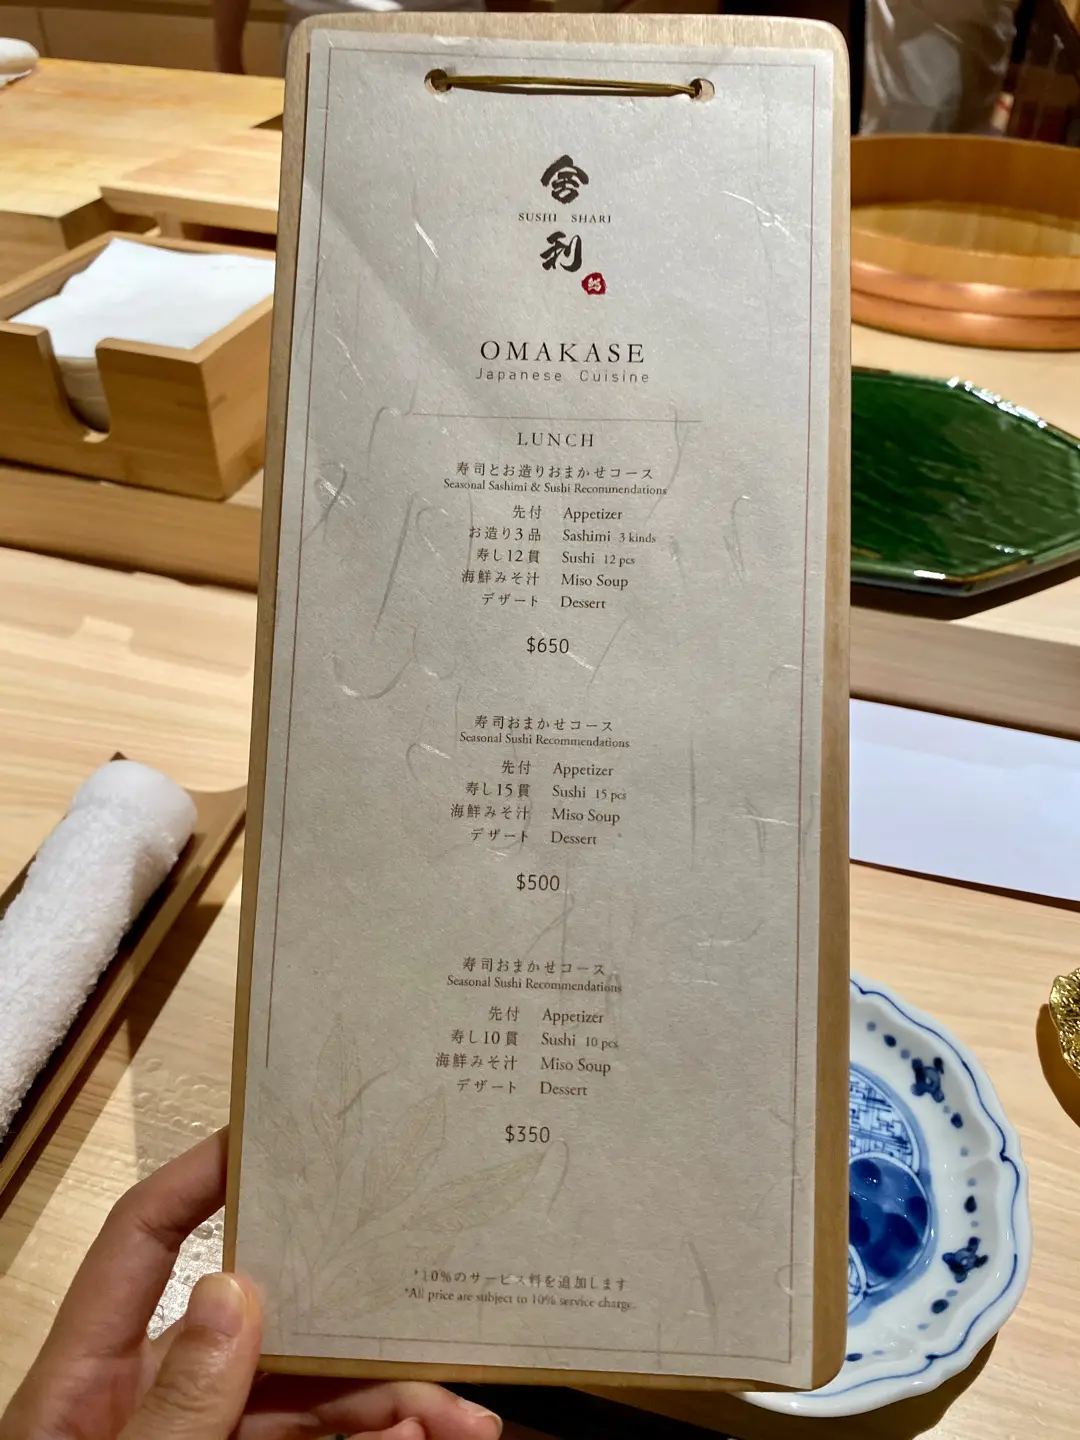 舍
SUSHI SHARI
利
鮨
OMAKASE
Japanese Cuisine
LUNCH
寿司とお造りおまかせコース
Seasonal Sashimi & Sushi Recommendations
先付 Appetizer
お造り3品 Sashimi 3 kinds
寿し12貫 Sushi 12 pcs
海鮮みそ汁 Miso Soup
デザート Dessert
$650
寿司おまかせコース
Seasonal Sushi Recommendations
先付 Appetizer
寿し15貫 Sushi 15 pcs
海鮮みそ汁 Miso Soup
デザート Dessert
$500
寿司おまかせコース
Seasonal Sushi Recommendations
先付 Appetizer
寿し10貫 Sushi 10 pcs
海鮮みそ汁 Miso Soup
デザート Dessert
$350
*10%のサービス料を追加します
*All price are subject to 10% service charge.